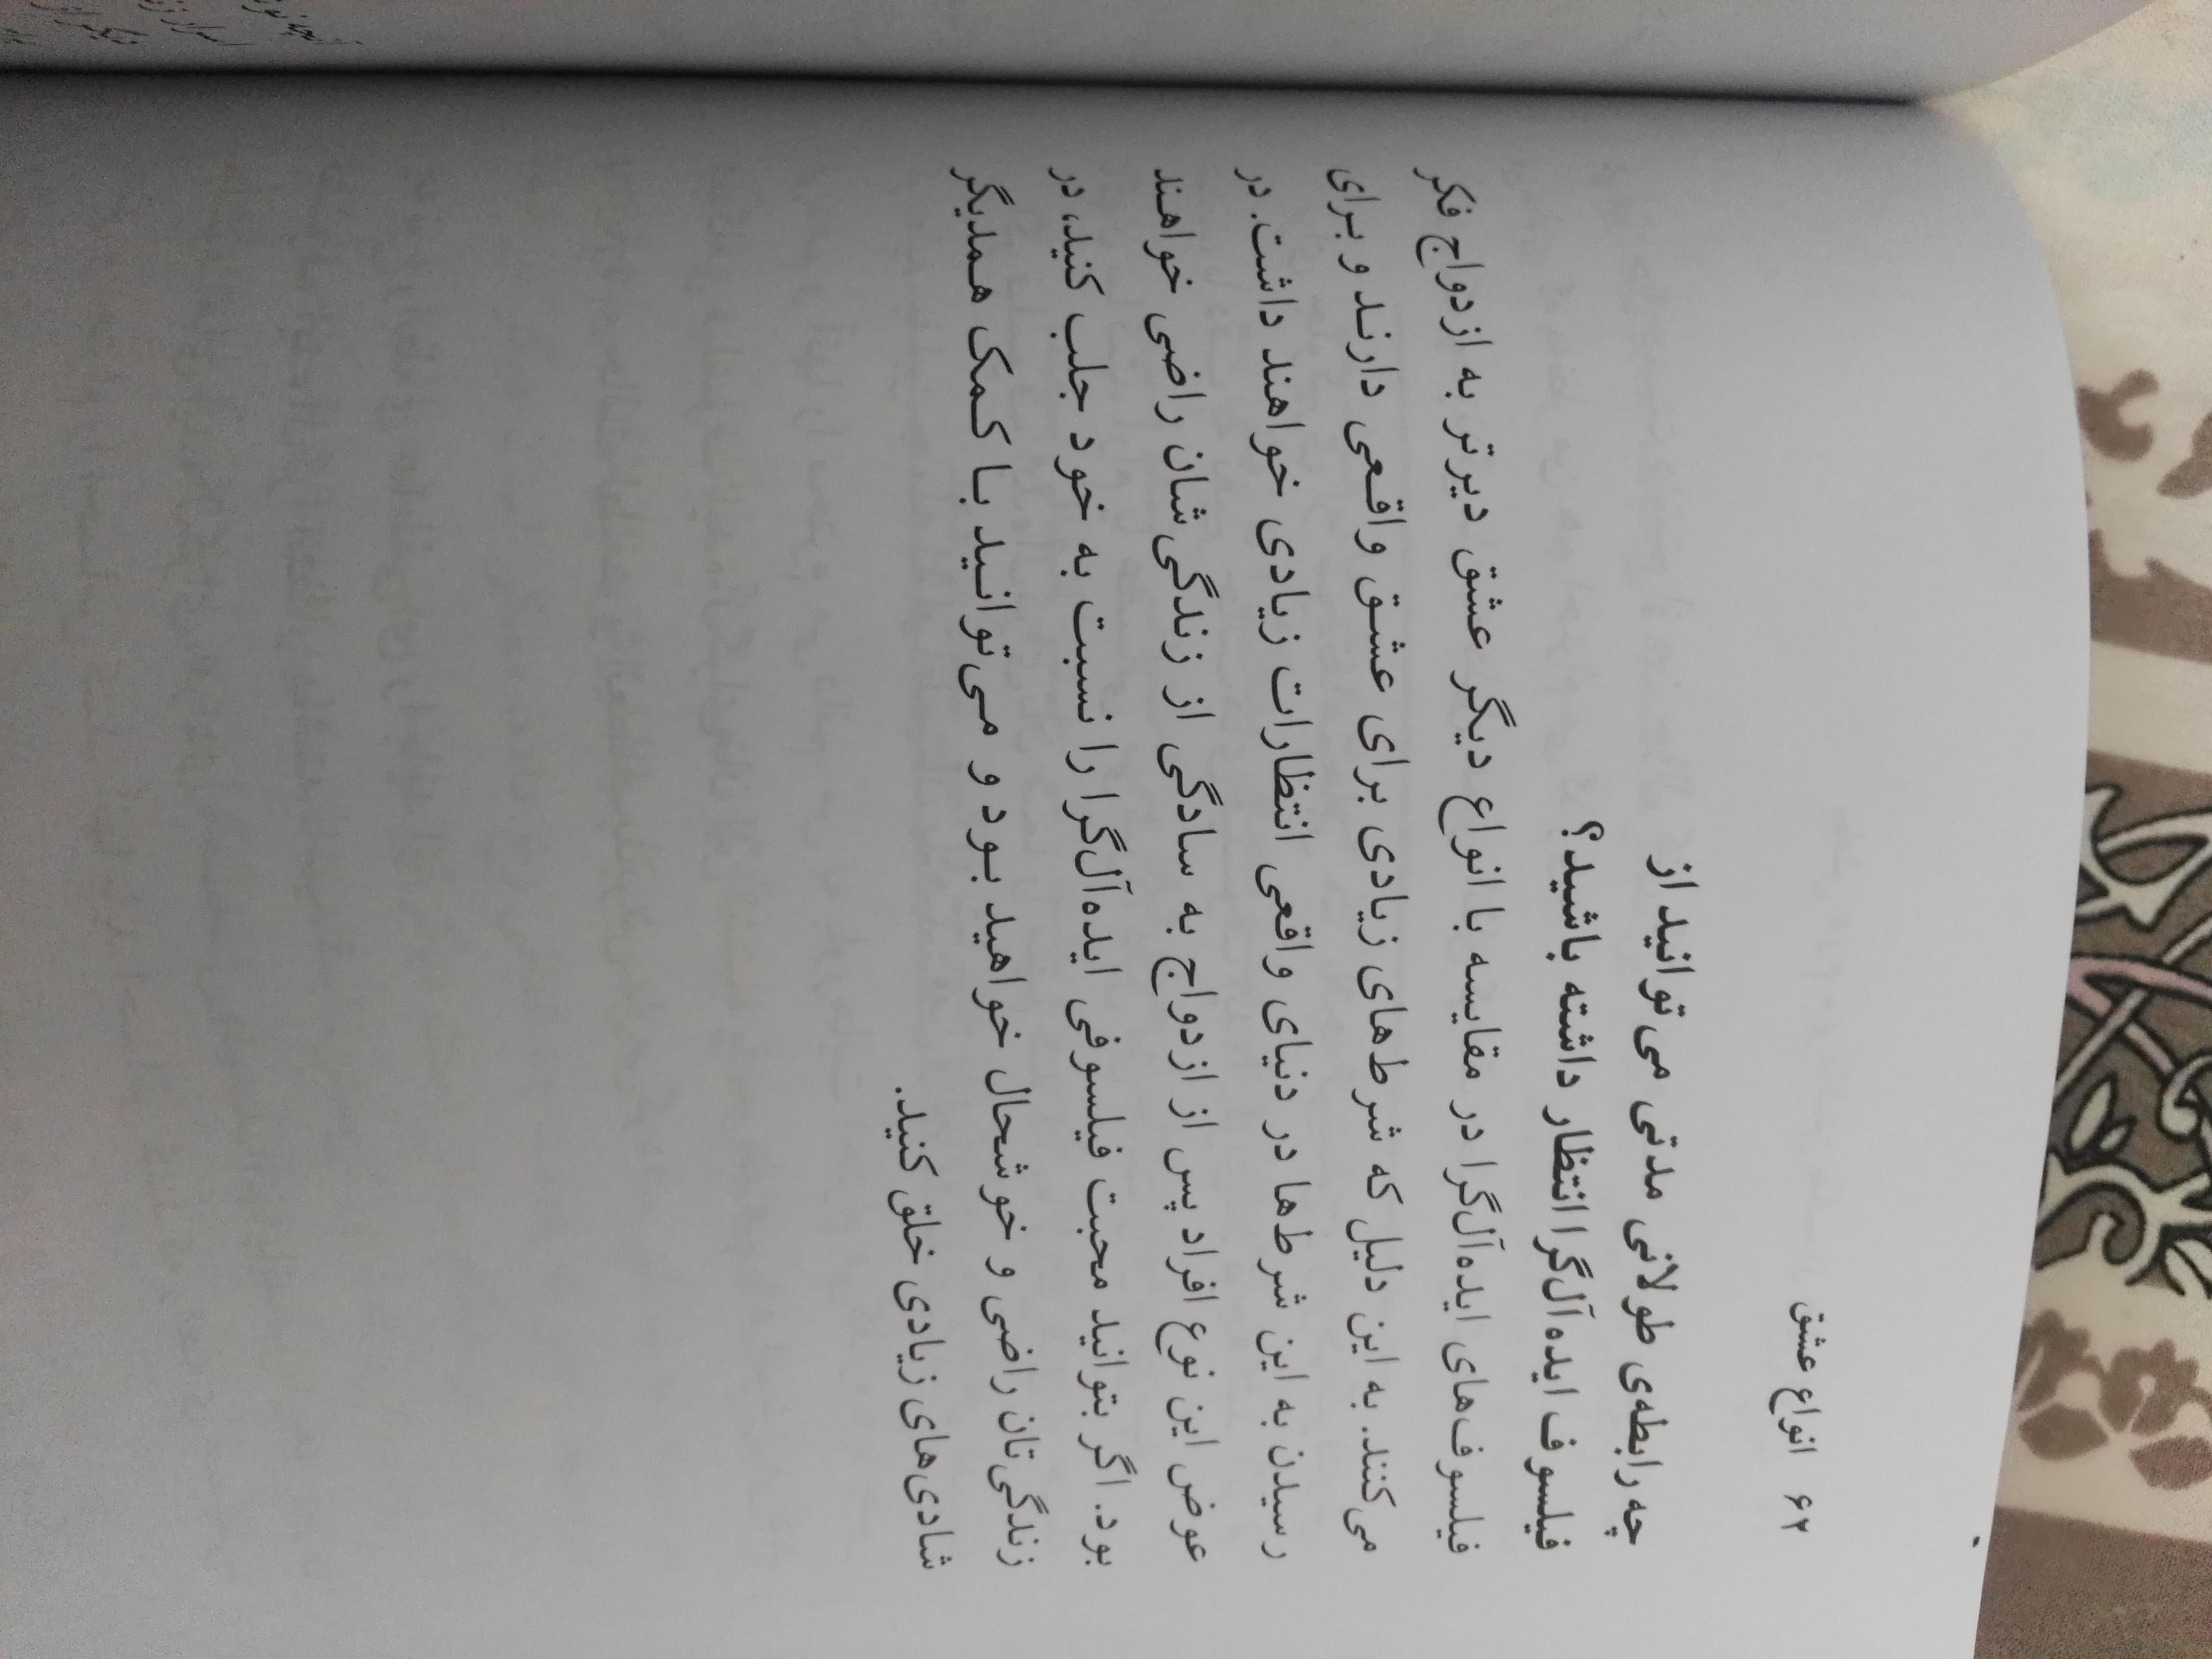 ۶۲ انواع عشق
چه رابطه‌ی طولانی مدتی می‌توانید از
فیلسوف ایده‌آل‌گرا انتظار داشته باشید؟
فیلسوف‌های ایده‌آل‌گرا در مقایسه با انواع دیگر عشق دیرتر به ازدواج فکر
می‌کنند. به این دلیل که شرط‌های زیادی برای عشق واقعی دارند و برای
رسیدن به این شرط‌ها در دنیای واقعی انتظارات زیادی خواهند داشت. در
عوض این نوع افراد پس از ازدواج به سادگی از زندگی‌شان راضی خواهند
بود. اگر بتوانید محبت فیلسوفی ایده‌آل‌گرا را نسبت به خود جلب کنید، در
زندگی‌تان راضی و خوشحال خواهید بود و می‌توانید با کمک همدیگر
شادی‌های زیادی خلق کنید.